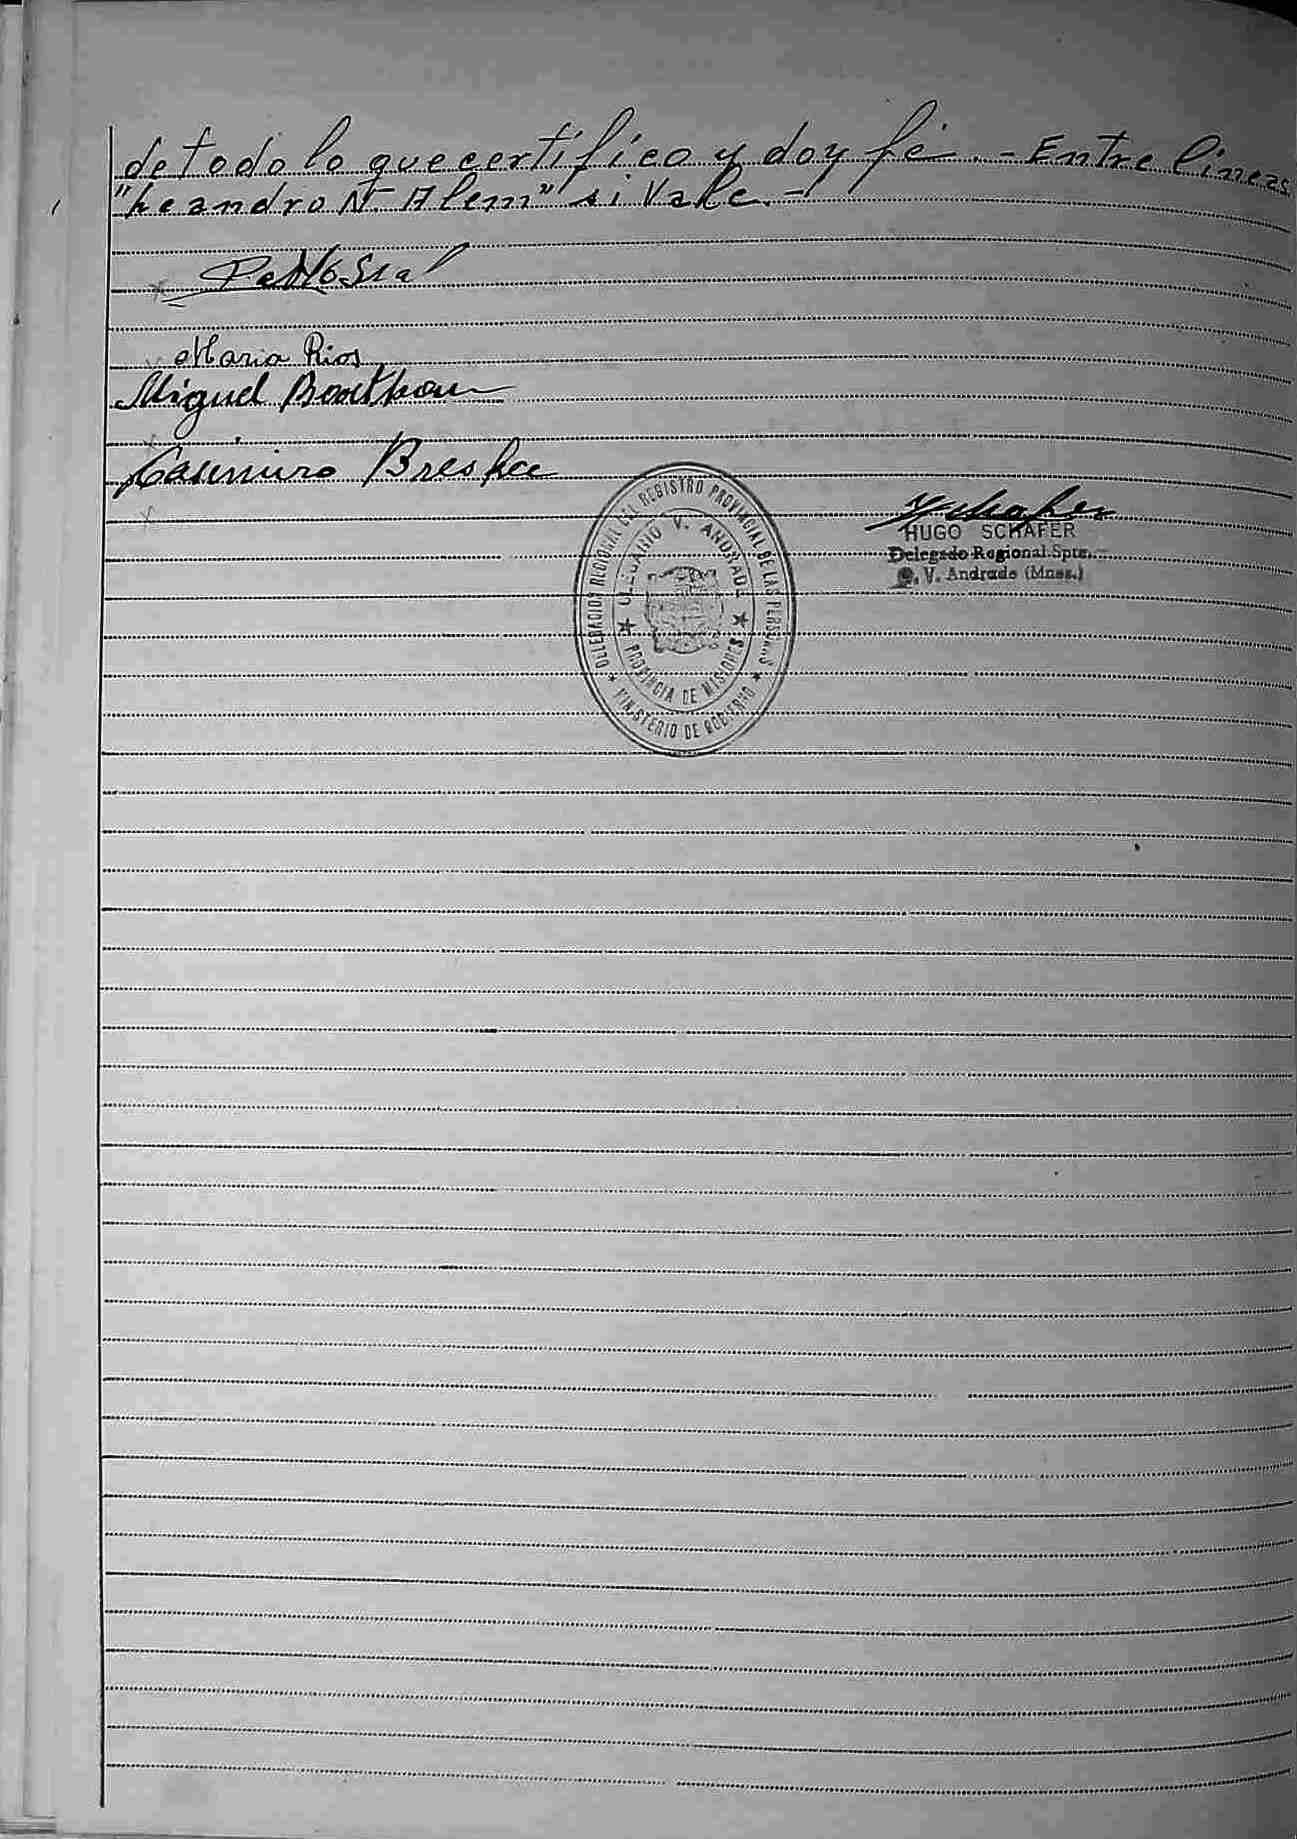 de todo lo que certifico y doy fé.- Entre lineas
"Leandro N. Alem" si Vale.-
Maria Rios
Miguel
Casimiro
DELEGACION REGIONAL DEL REGISTRO PROVINCIAL DE LAS PERSONAS
OLEGARIO V. ANDRADE
PROVINCIA DE MISIONES
MINISTERIO DE GOBIERNO
HUGO SCHAFER
Delegado Regional Spte.
O. V. Andrade (Mnes.)